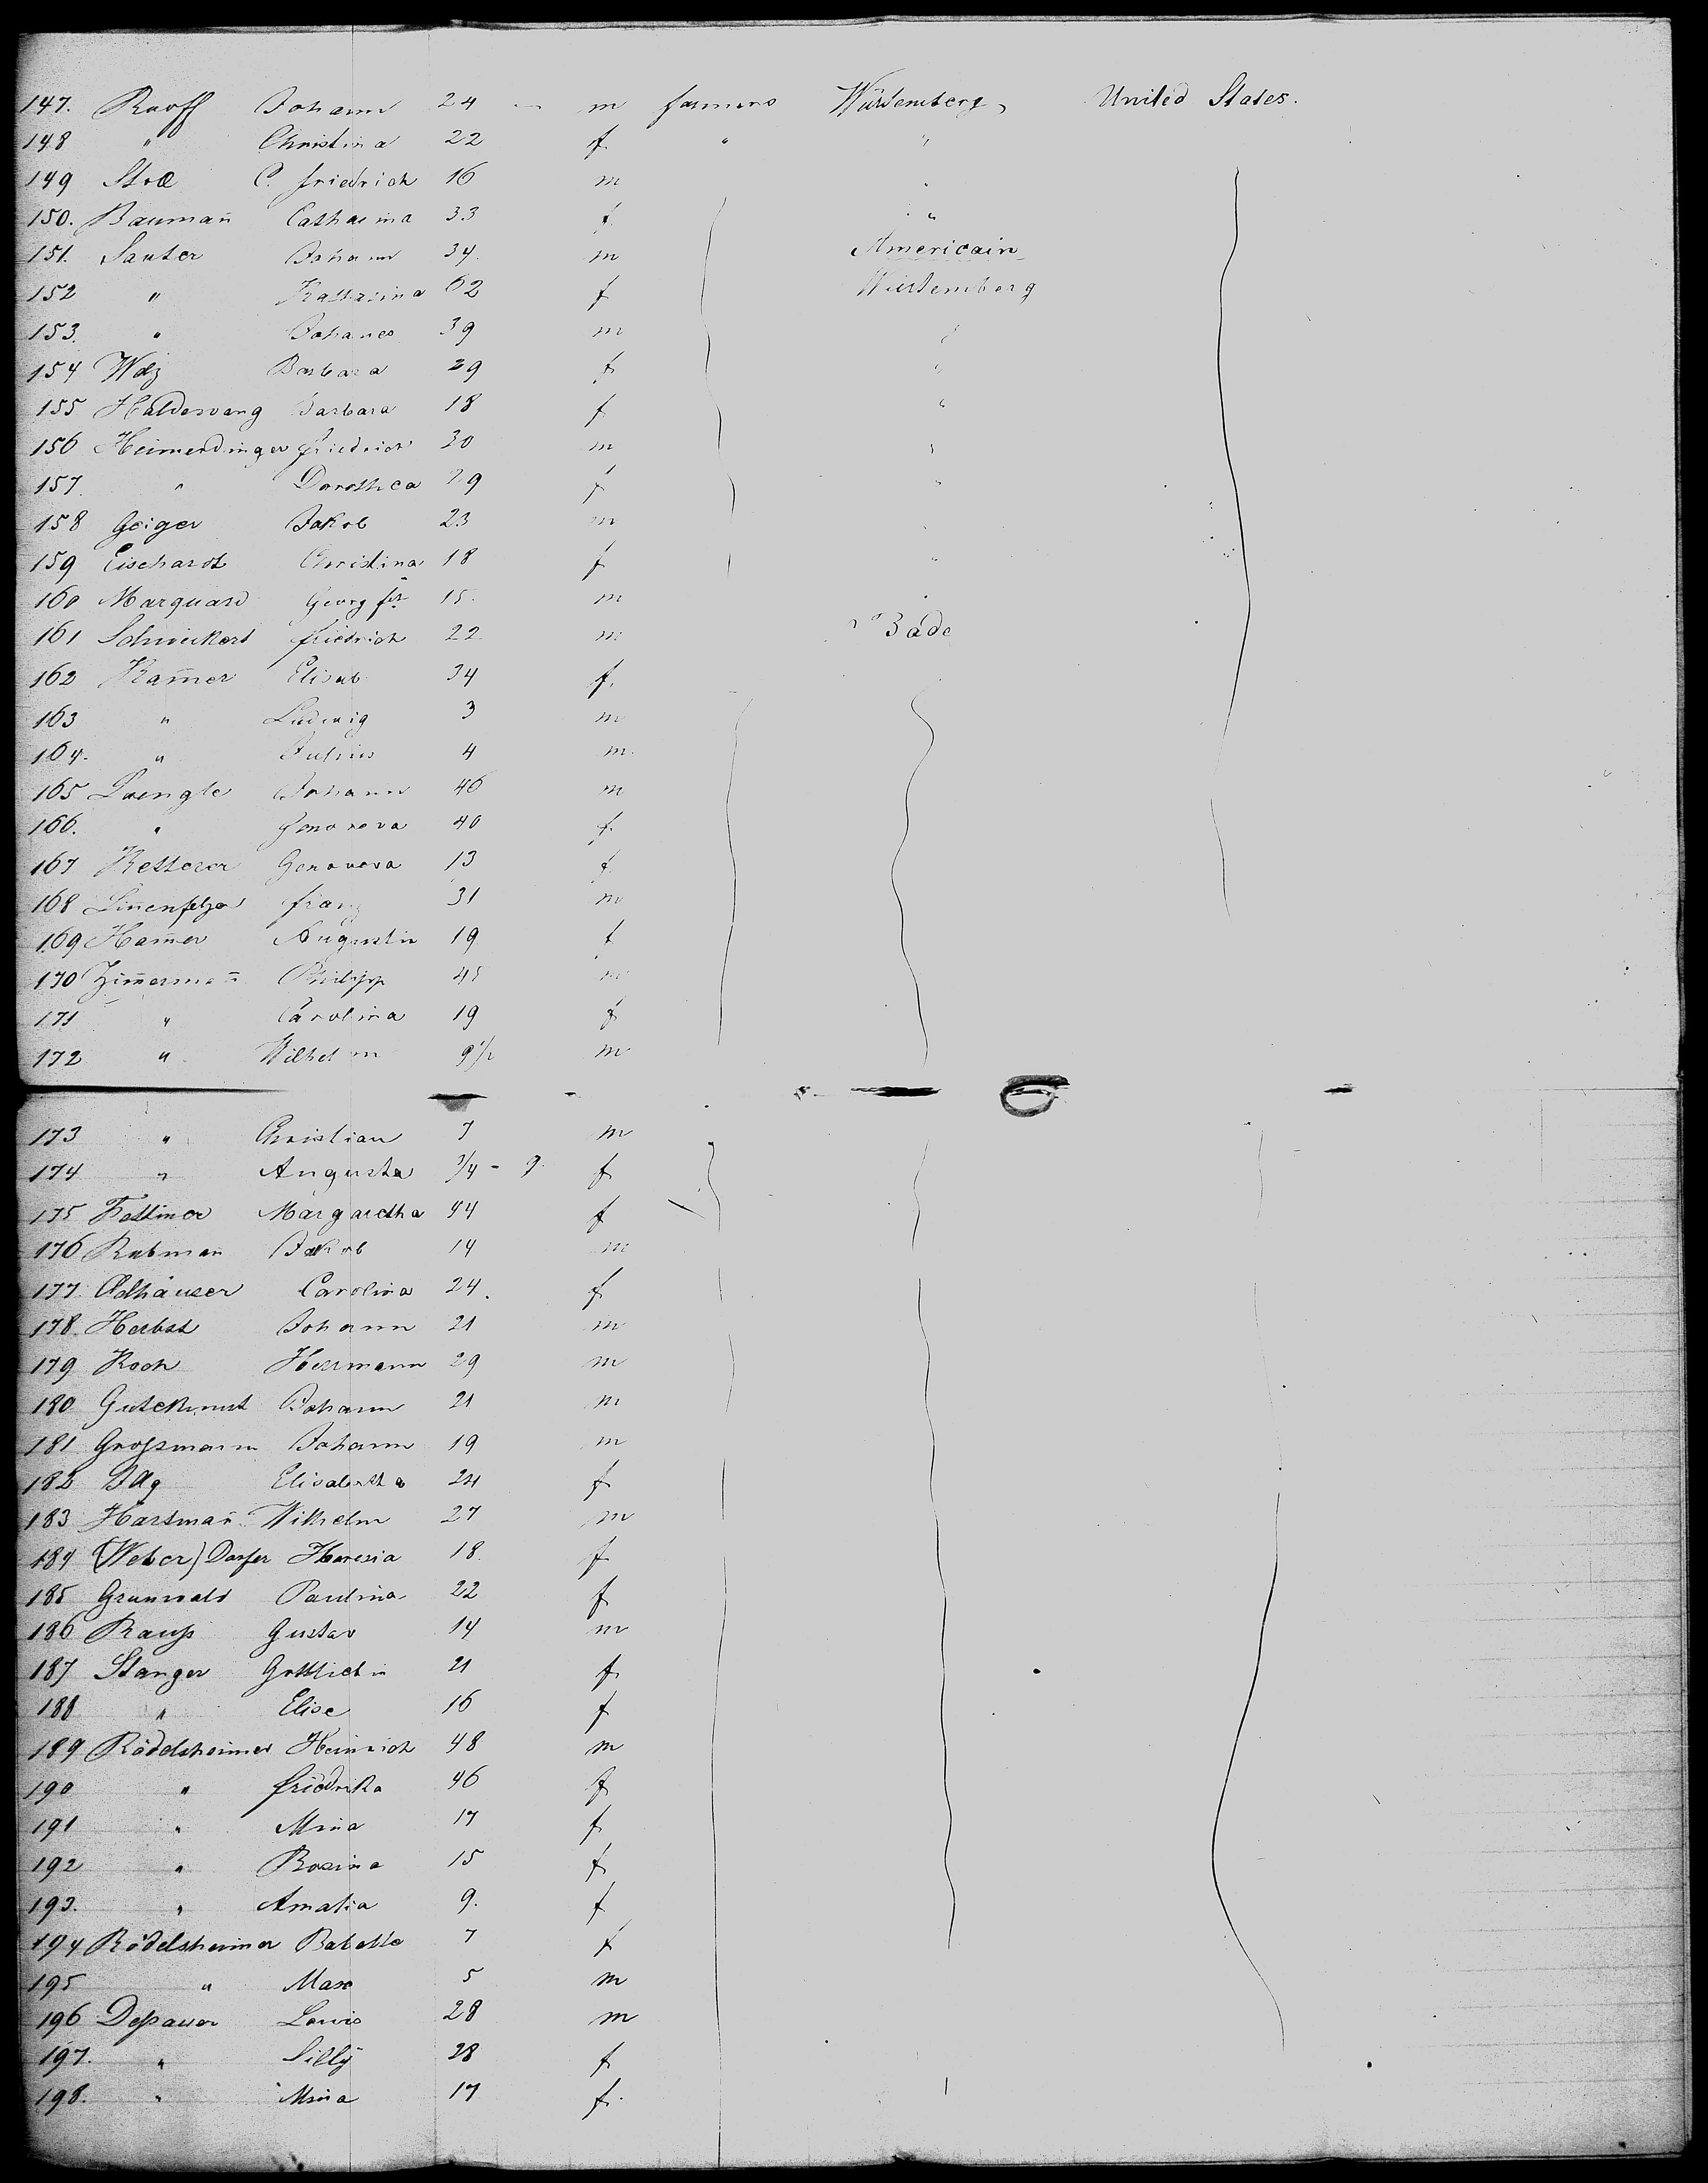 147. Ruoff Johann 24 — m farmers Würtemberg, United States.
148 " Christina 22 f " "
149 C. Friedrich 16 m "
150. Baumañ Catharina 33 f "
151. Sauter Johann 34. m Americain
152 " Kattarina 62 f Würtemberg
153. " Johanes 39 m "
154 Barbara 29 f "
155 Halderwang Barbara 18 f "
156 Heimerdinger Friedrich 30 m "
157. " Dorothea 29 f "
158 Geiger Jakob 23 m "
159 Eischardt Christina 18 f "
160 Marquard Georg fr 15. m "
161 Schweikert Friedrich 22 m Bade
162 Kam̄er Elisab 34 f.
163 " Ludwig 3 m
164. " Julius 4 m.
165 Johann 46 m
166. " Genoveva 40 f.
167 Ketterer Genoveva 13 f
168 Lin̄enfelser Franz 31 m
169 Ham̄er Augustin 19 f
170 Zim̄ermañ Philipp 45 m
171 " Carolina 19 f
172 " Wilhelm 9 1/2 m
173 " Christian 7 m
174 " Augusta 3/4 - 9. f
175 Fettiner Margaretha 44 f
176 Rubmañ Jakob 14 m
177 Adhäuser Carolina 24. f
178. Herbst Johann 21 m
179 Koch Herrmann 29 m
180 Gutekunst Johann 21 m
181 Großmann Johann 19 m
182 Illg Elisabetha 24 f
183 Hartmañ Wilhelm 27 m
184 (Weber) Dorfer Theresia 18. f
185 Grunwald Paulina 22 f
186 Rauß Gustav 14 m
187 Stanger Gottliebin 21 f
188 " Elise 16 f
189 Rödelsheimer Heinrich 48 m
190 " Friedrika 46 f
191 " Mina 17 f
192 " Rosina 15 f
193. " Amalia 9. f
194 Rödelsheimer Babette 7 f
195 " Max 5 m
196 Deßauer Louis 28 m
197. " Lilly 28 f
198. " Mina 17 f.